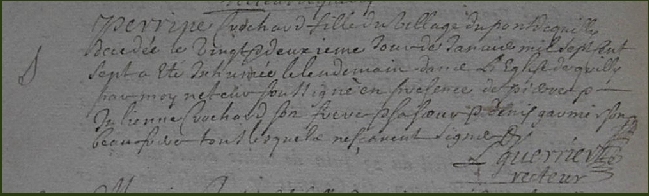 perrine Rochard fille du village du pon de quilly
decedée le vingt deuxieme Jour de Janvie mil sept cent
sept a eté Inhumée le lendemain dans L'Eglise de quilly
par moy recteur soussigné en presence de pierre
Julienne Rochard son frere sa soeur Denis garnie son
beaufrere tout lesquels ne scavent signe
guerrier
recteur